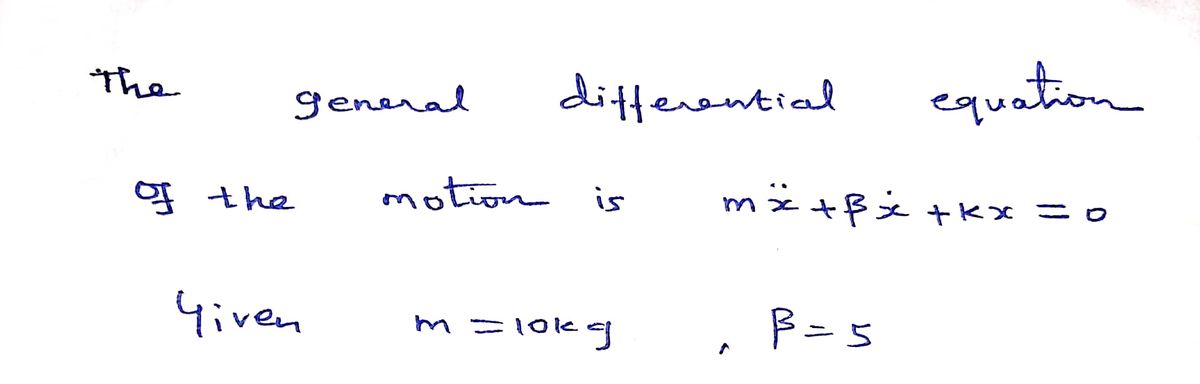 The general differential equation
of the motion is mẍ + βẋ + kx = 0
Given m = 10kg , β = 5